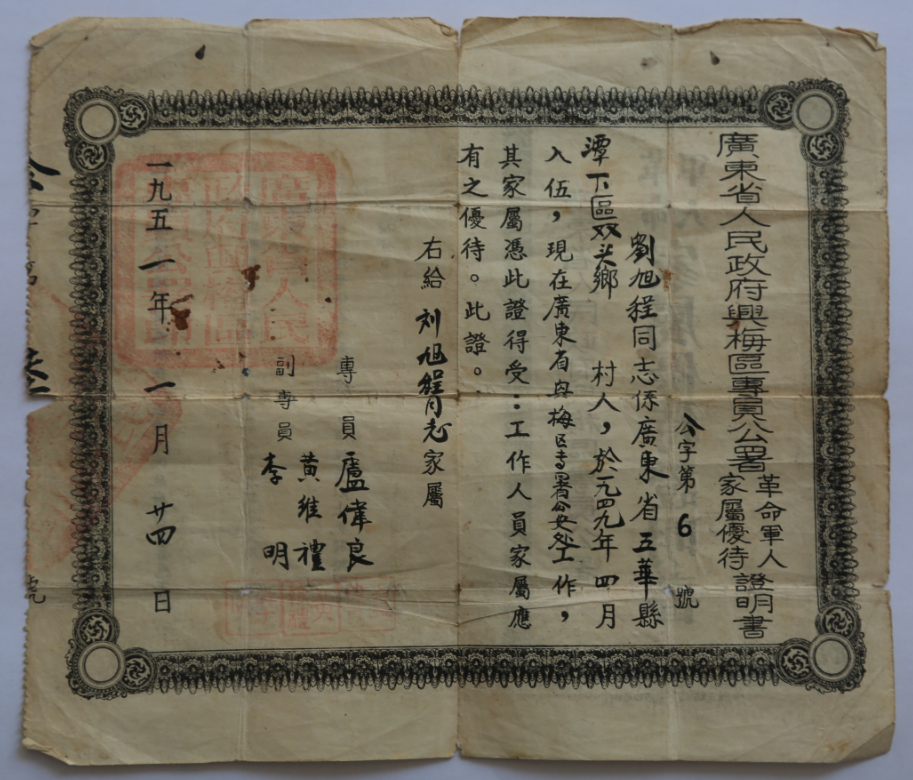 廣東省人民政府興梅區專員公署革命軍人家屬優待證明書
公字第6號
劉旭程同志係廣東省五華縣
潭下區双头鄉 村人，於一九四九年四月
入伍，現在廣東省兴梅區专署公安处工作，
其家屬憑此證得受：工作人員家屬應
有之優待。此證。
右給 刘旭程同志家屬
專員盧偉良
副專員李 明
黃維禮
一九五一年一月廿四日
號